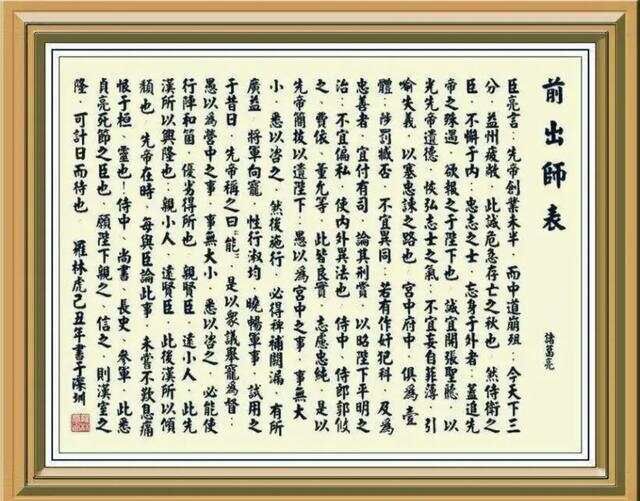 前出師表
諸葛亮
臣亮言：先帝創業未半，而中道崩殂；今天下三
分，益州疲敝，此誠危急存亡之秋也。然侍衛之
臣，不懈于內；忠志之士，忘身于外者：蓋追先
帝之殊遇，欲報之于陛下也。誠宜開張聖聽，以
光先帝遺德，恢弘志士之氣；不宜妄自菲薄，引
喻失義，以塞忠諫之路也。宮中府中，俱為壹
體；陟罰臧否，不宜異同：若有作奸犯科，及為
忠善者，宜付有司，論其刑賞，以昭陛下平明之
治；不宜偏私，使內外異法也。侍中、侍郎郭攸
之、費依、董允等，此皆良實，志慮忠純，是以
先帝簡拔以遺陛下。愚以為宮中之事，事無大
小，悉以咨之，然後施行，必得裨補闕漏，有所
廣益。將軍向寵，性行淑均，曉暢軍事，試用之
于昔日，先帝稱之曰“能”，是以衆議舉寵為督：
愚以為營中之事，事無大小，悉以咨之，必能使
行陣和笛，優劣得所也。親賢臣，遠小人，此先
漢所以興隆也；親小人，遠賢臣，此後漢所以傾
頹也。先帝在時，每與臣論此事，未嘗不歎息痛
恨于桓、靈也！侍中、尚書、長史、參軍，此悉
貞亮死節之臣也，願陛下親之、信之，則漢室之
隆，可計日而待也。 羅林虎己丑年書于深圳